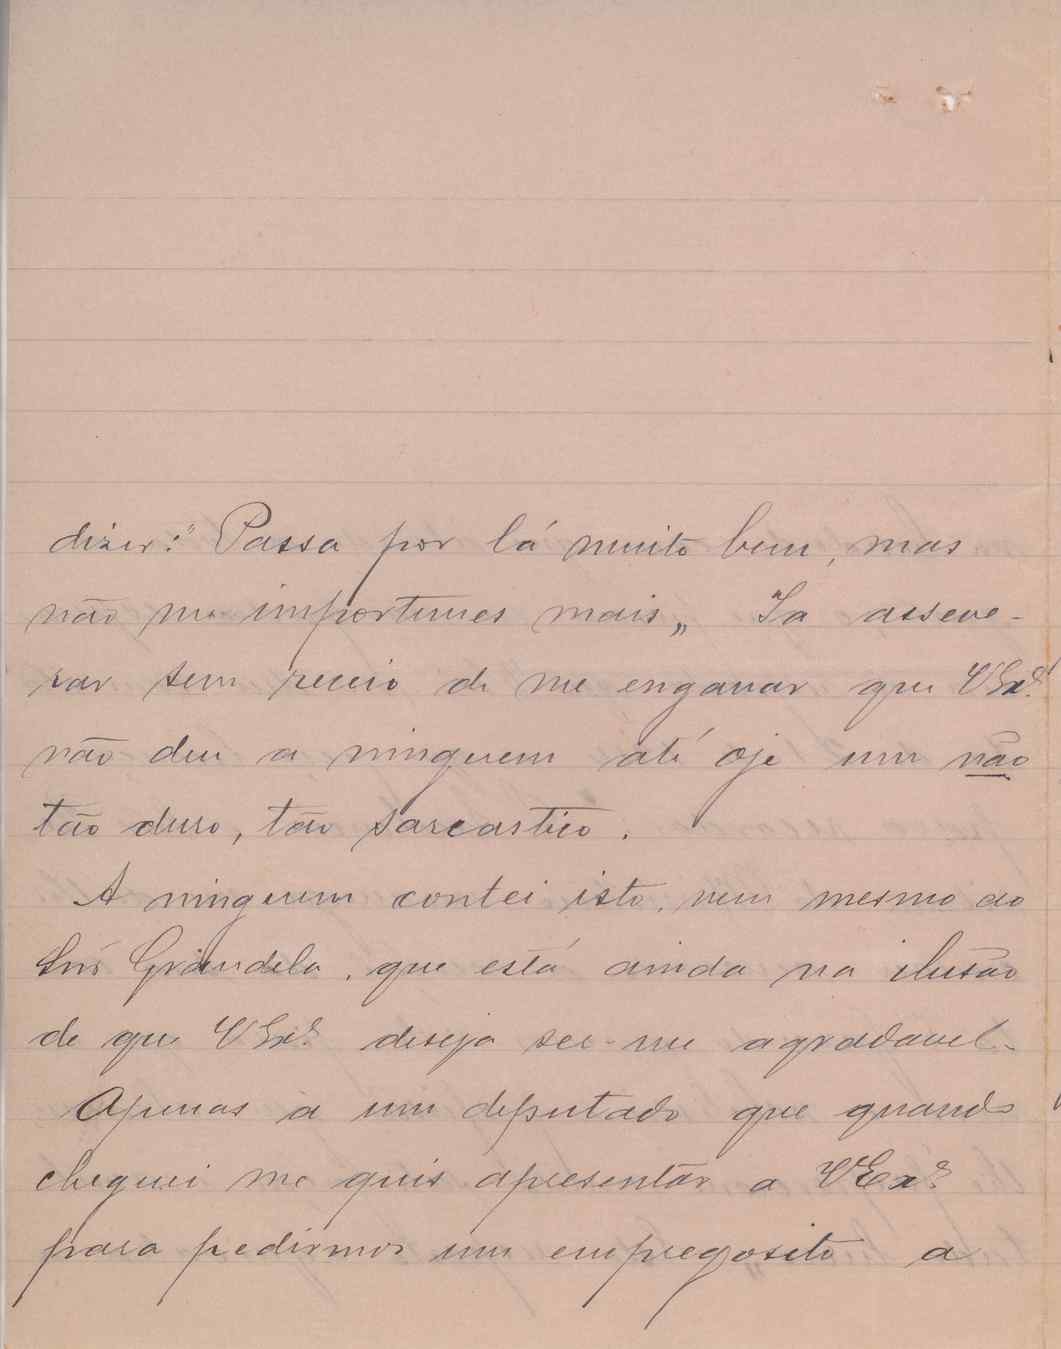 dizer: "Passa por lá muito bem, mas
não me importunes mais„ Ia asseve-
rar sem receio de me enganar que V Exª
não deu a ninguem até oje um não
tão duro, tão sarcastico.
A ninguem contei isto, nem mesmo ao
Luís Grandela, que está ainda na ilusão
de que V Exª deseja ser-me agradavel.
Apenas a um deputado que quando
cheguei me quis apresentar a V Exª
para pedirmos um empregosito a